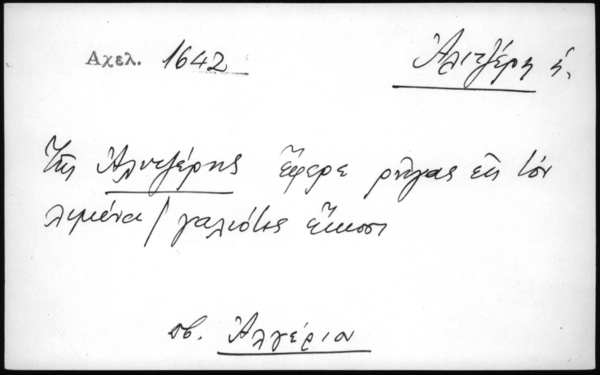 Αχελ. 1642
Ἀλιτζέρη ἡ.
Τῆς Ἀλιτζέρης ἔφερε ρήγας εἰς τὸν
λιμένα / γαλιότες εἴκοσι
σβ. Ἀλγέριον